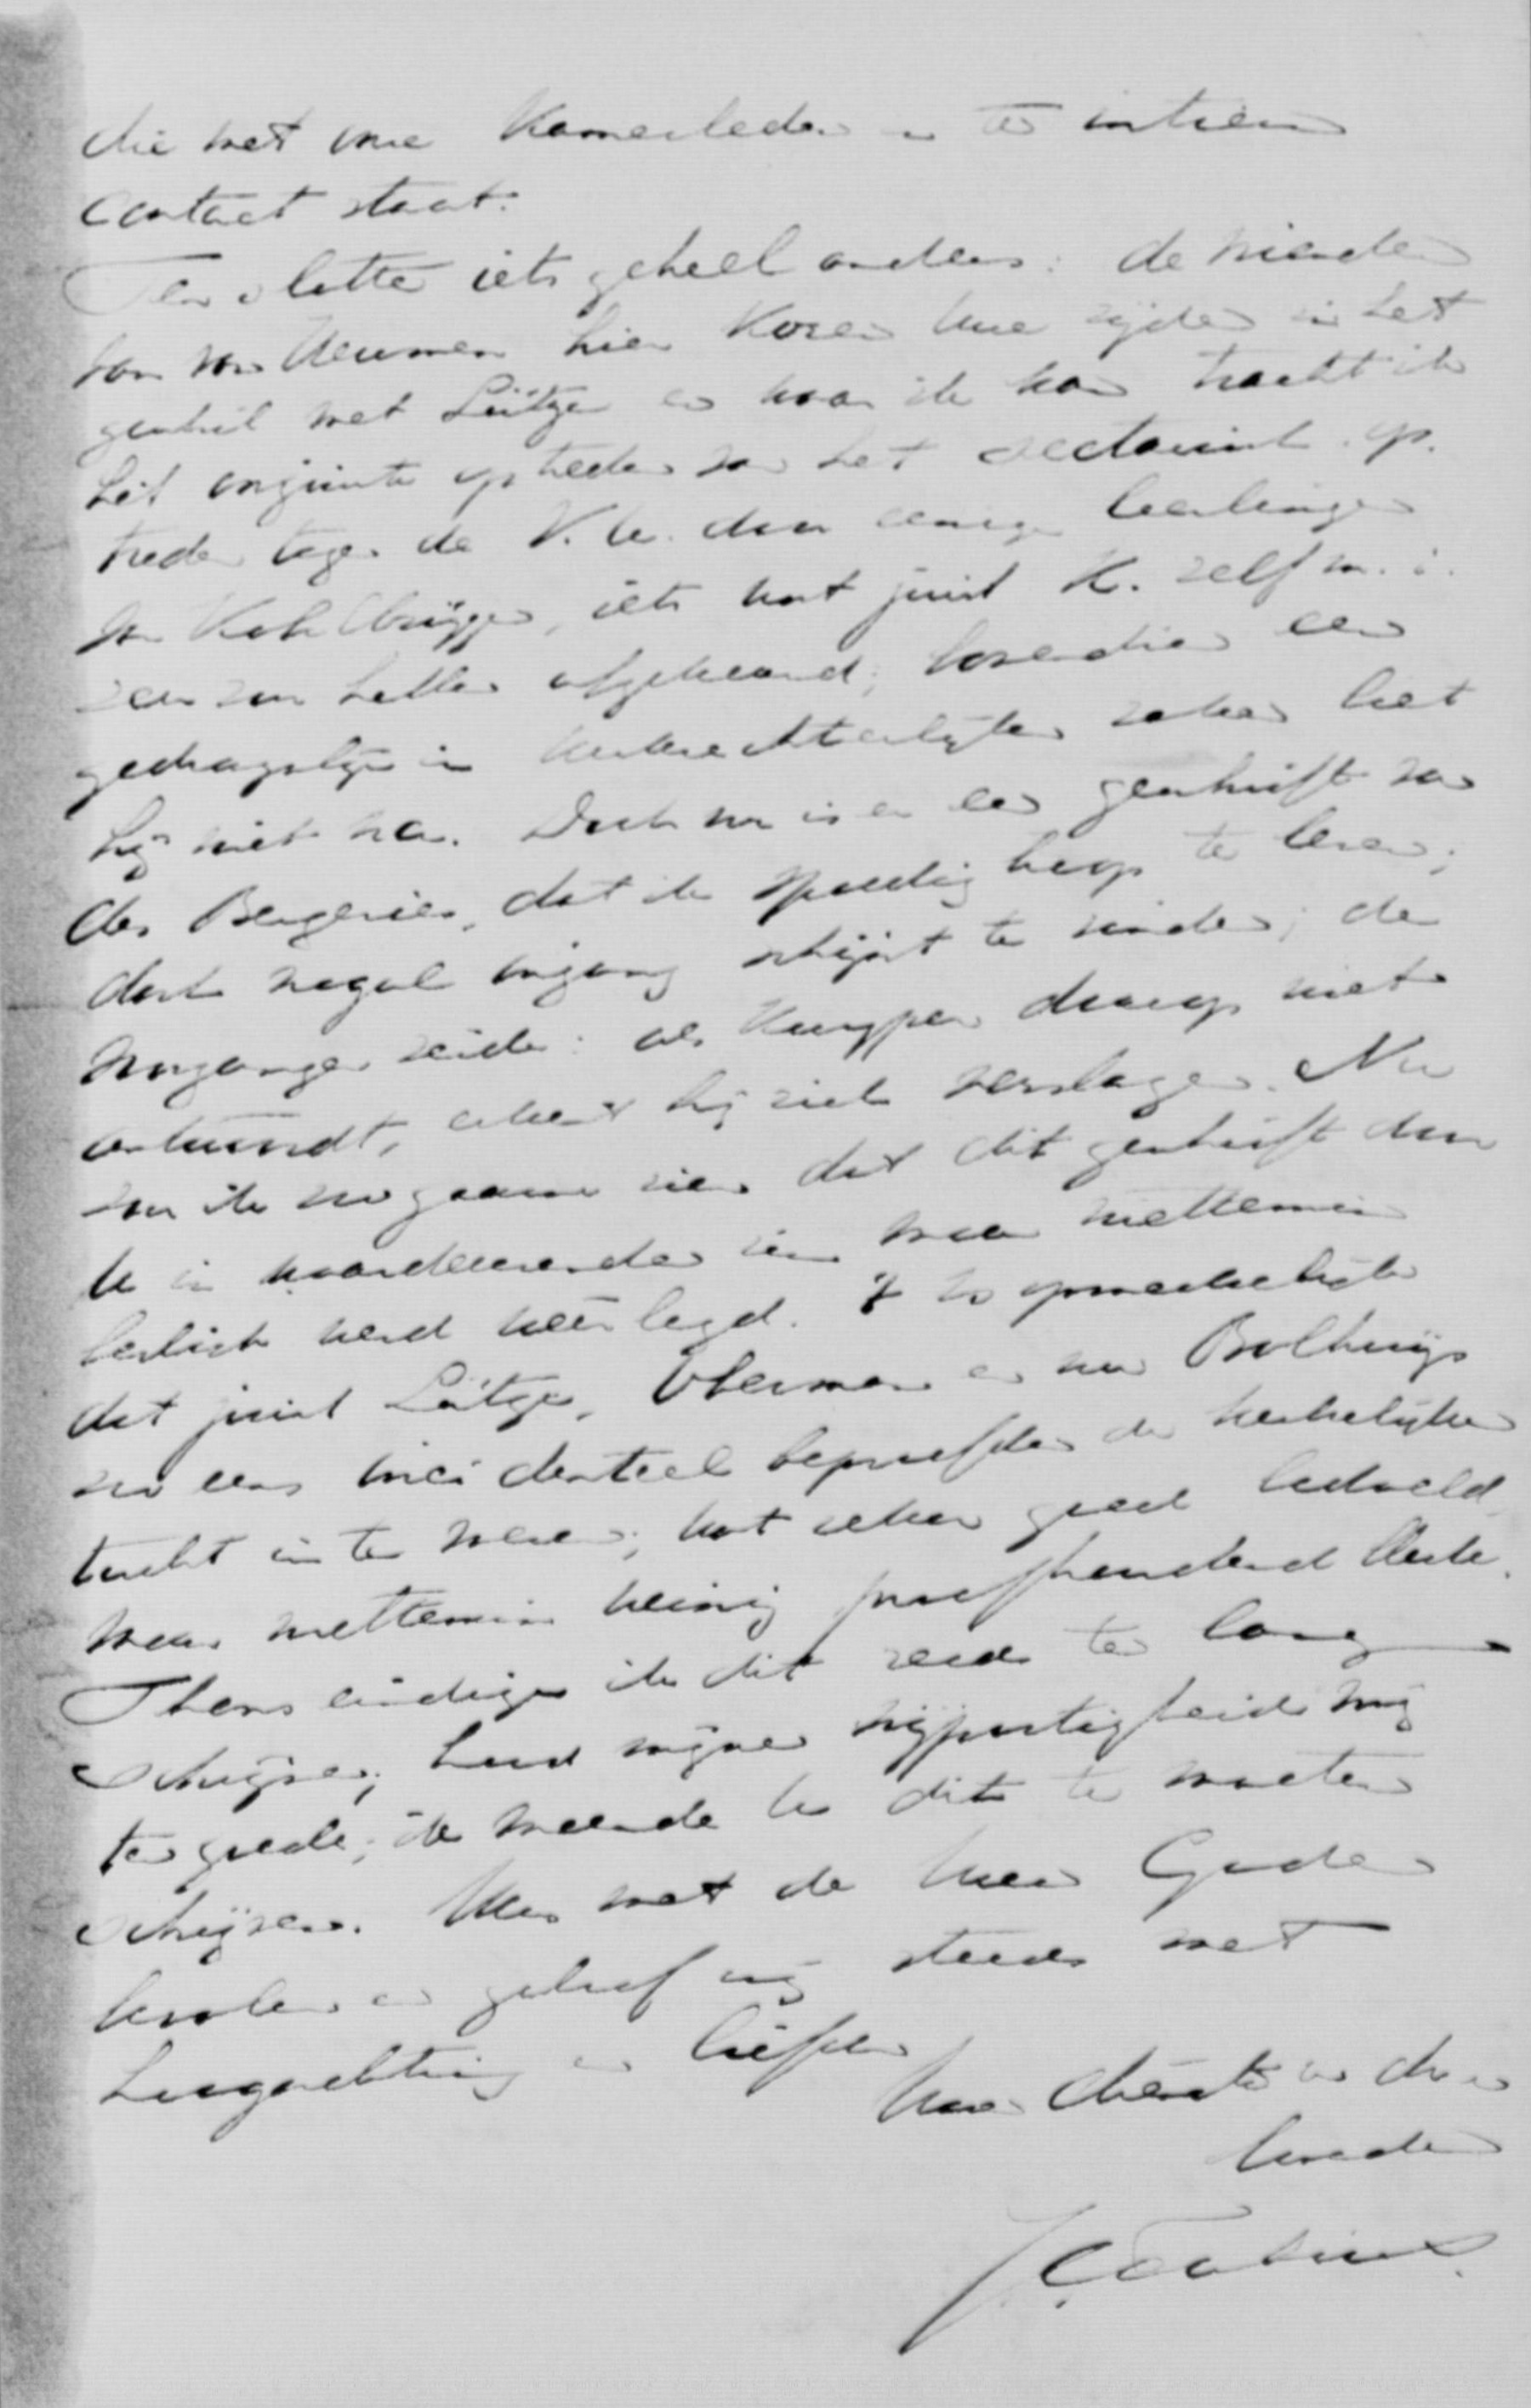 die met onze Kamerleden in te intiem
contact staat.
Ten slotte iets geheel anders: de vrienden
van van Heumen hier kozen hue zijde in het
geschil met Lütge en waar ik kan tracht ik
het onjuiste optreden van het sectarisch op-
treden tegen de V.U. door eenige leerlingen
van Kohlbrügge, iets wat juist K. zelf m.i.
zeer zou hebben afgekeurd; bovendien een
gedragslijn in kerkrechterlijke zaken liet
hij niet na. Doch nu is er een geschrift van
des Bergeries, dat ik spoedig hoop te lezen;
doch nogal ingang schijnt te vinden; de
voorganger zeide: als Kuyper daarop niet
antwoordt, erkent hij zich verslagen. Nu
zou ik zoo gaarne zien dat dit geschrift door
U in waardeerenden zin maar niettemin
beslist werd weêrlegd. 't Is opmerkelijk
dat juist Lütge, Oberman en nu Bolhuijs
zoo eens incidenteel beproefden de kerkelijke
tucht in te voeren; wat zeker goed bedoeld,
maar niettemin weinig proefhoudend bleek.
Thans eindig ik dit reeds te lang
schrijven; houd mijne vrijpostigheid mij
ten goede; ik meende U dit te moeten
schrijven. Wees met de Uwen Gode
bevolen en geloof mij steeds met
hoogachting en liefde
Uw dienstv. en dw.
broeder